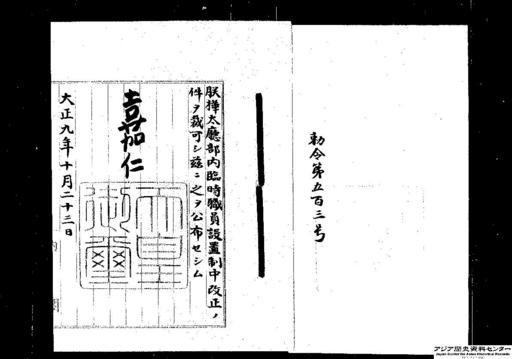 勅令第五百三号
朕樺太廳部内臨時職員設置制中改正ノ
件ヲ裁可シ茲ニ之ヲ公布セシム
嘉仁
天皇
御璽
大正九年十月二十三日
アジア歴史資料センター
Japan Center for Asian Historical Records